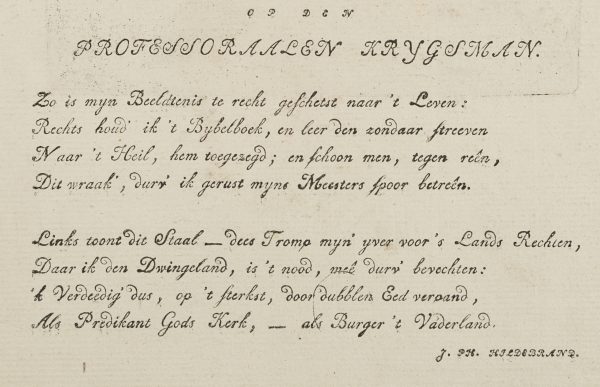 OP DEN
PROFESSORAALEN KRYGSMAN.
Zo is myn Beeldtenis te recht geschetst naar 't Leven:
Rechts houd ik 't Bybelboek, en leer den zondaar streeven
Naar 't Heil, hem toegezegd; en schoon men, tegen reên,
Dit wraak', durv' ik gerust myns Meesters spoor betreên.
Links toont dit Staal — dees Tromp myn' yver voor 's Lands Rechten,
Daar ik den Dwingeland, is 't nood, meê durv' bevechten:
'k Verdeedig dus, op 't sterkst, door dubblen Eed verpand,
Als Predikant Gods Kerk, — als Burger 't Vaderland.
J. PH. HILDEBRAND.